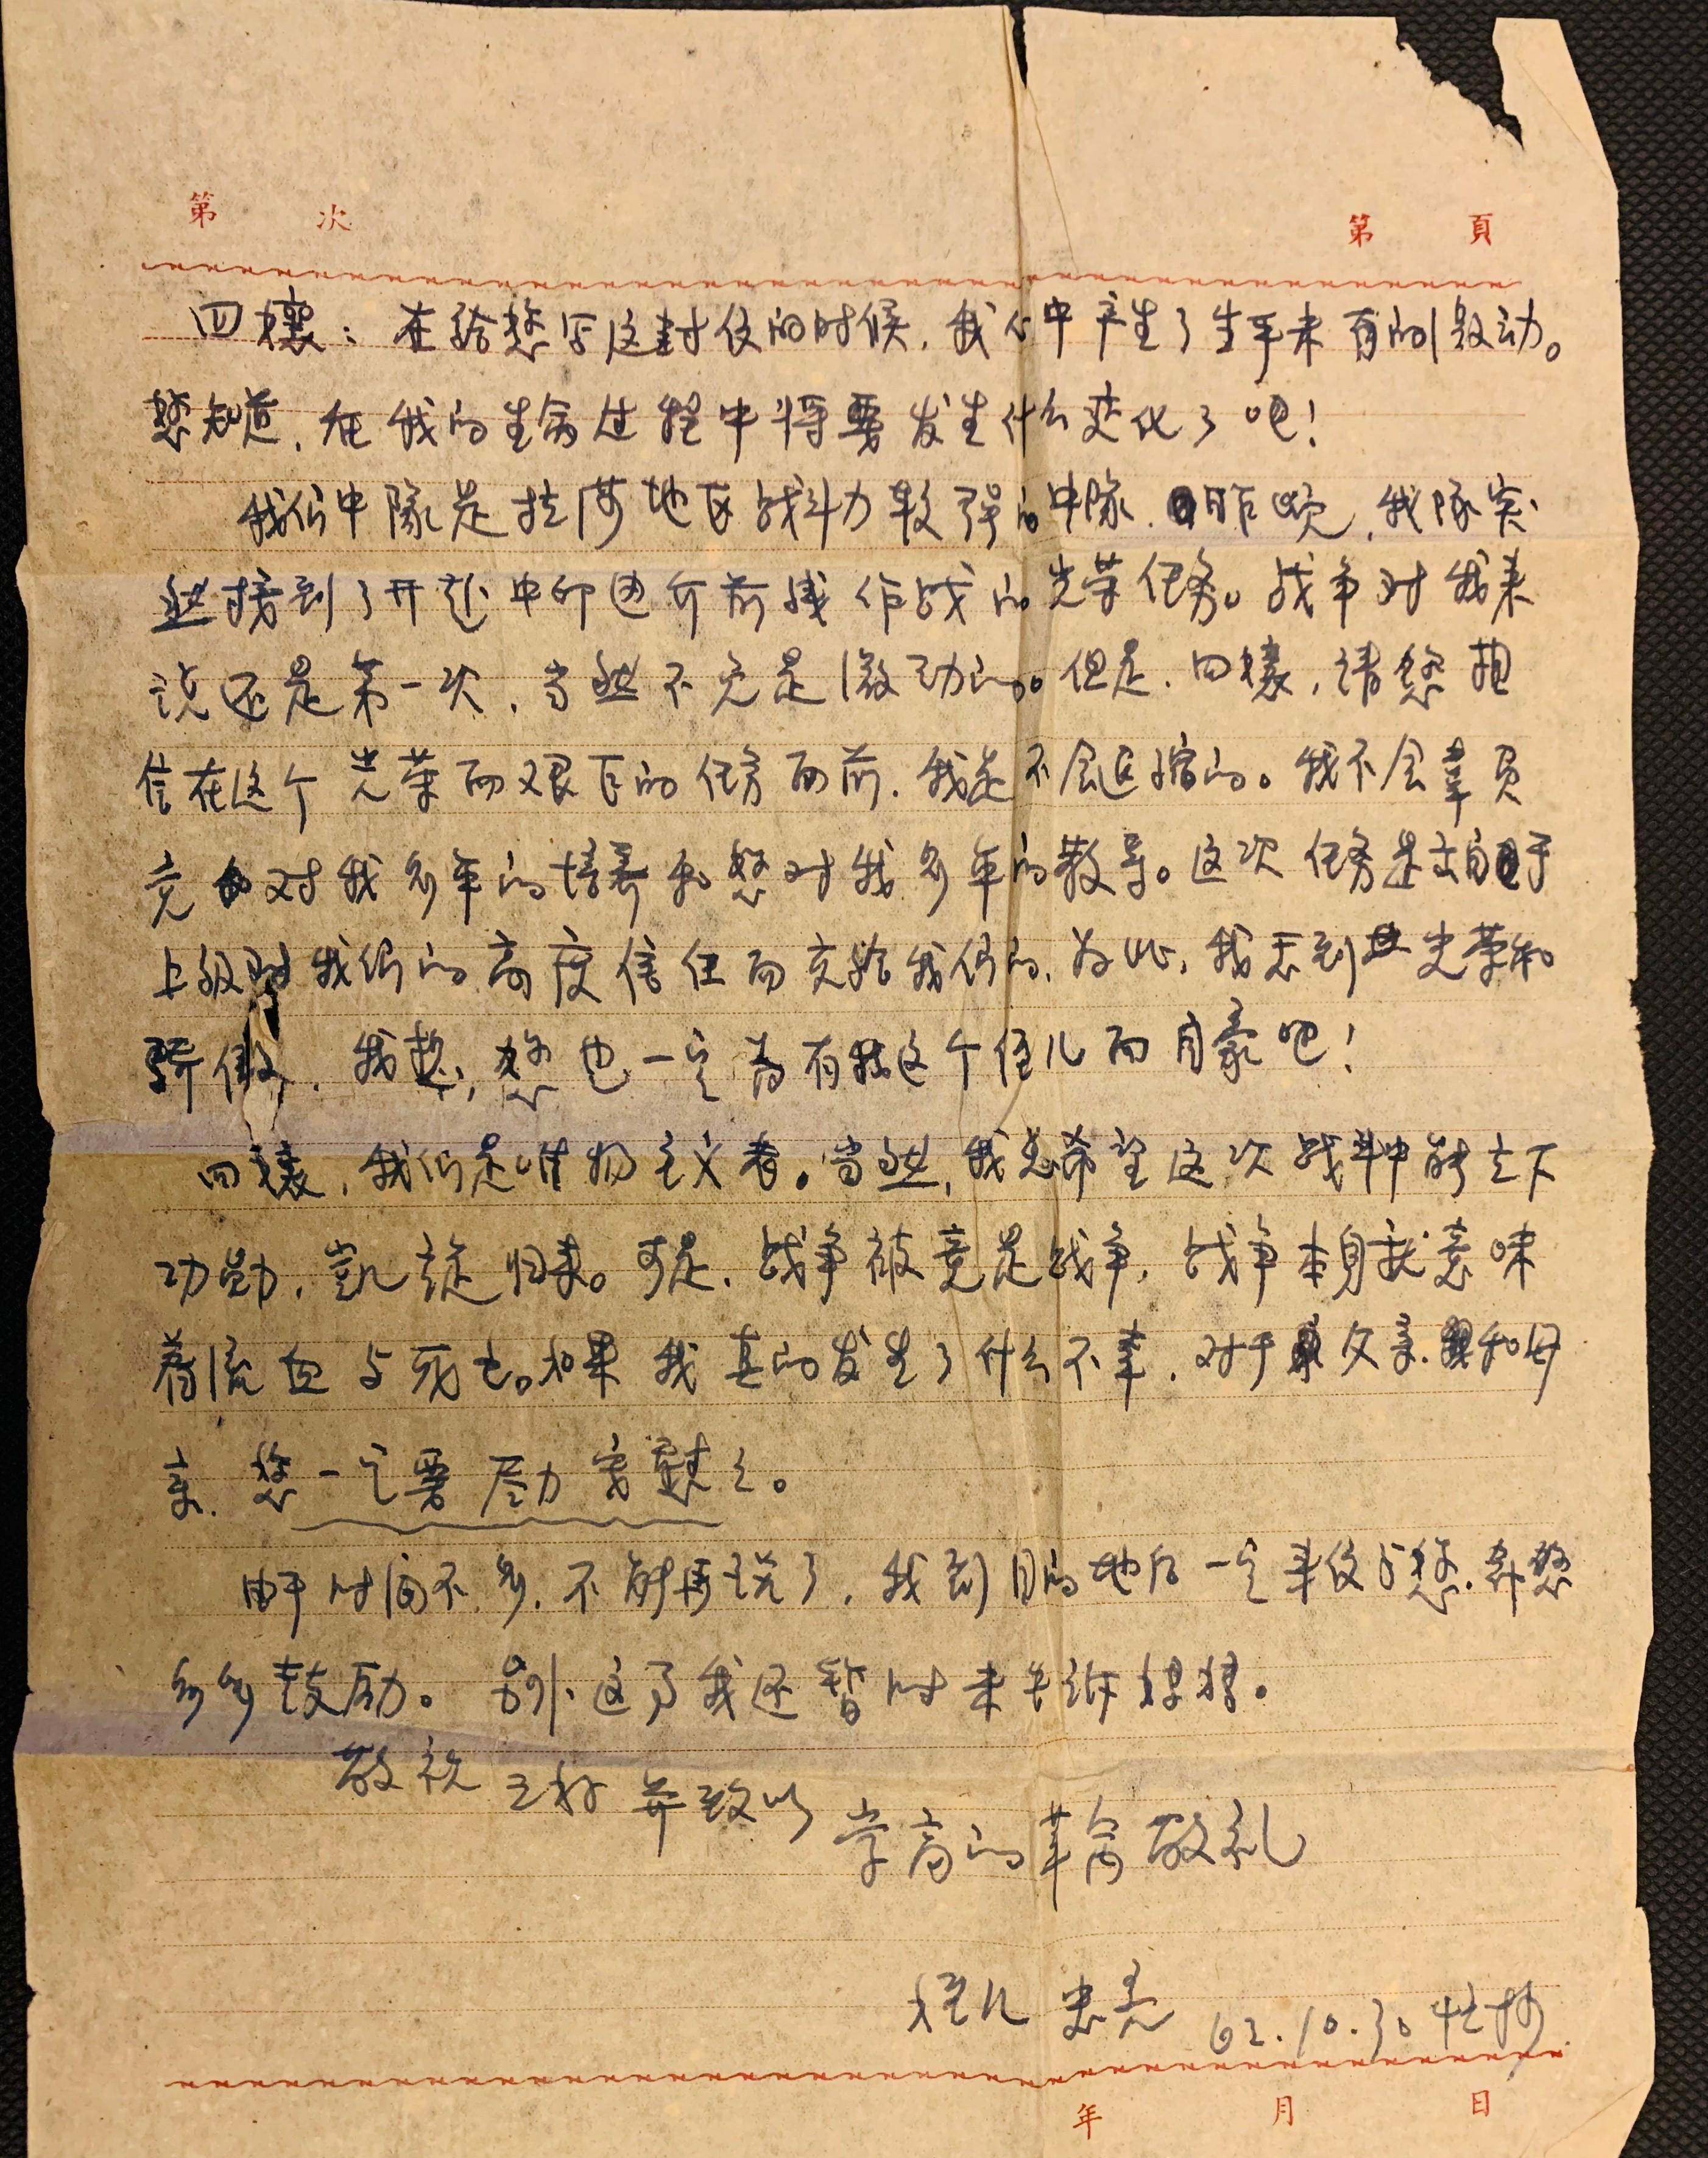 第 次 第 頁
四嬢：在给您写这封信的时候，我心中产生了生平未有的激动。
您知道，在我的生命过程中将要发生什么变化了吧！
我们中隊是拉萨地区战斗力較强的中隊。昨晚，我隊突
然接到了开赴中印边界前线作战的光荣任务。战争对我来
说还是第一次，当然不免是激动的。但是，四嬢，请您相
信在这个光荣而艰巨的任务面前，我是不会退缩的。我不会辜负
党对我多年的培养和您对我多年的教导。这次任务是出自于
上级对我们的高度信任而交给我们的，为此，我感到光荣和
骄傲，我想，您也一定为有我这个侄儿而自豪吧！
四嬢，我们是唯物主义者。当然，我总希望这次战斗中能立下
功勋，凯旋归来。可是，战争被竟是战争，战争本身就意味
着流血与死亡。如果我真的发生了什么不幸，对于父亲和母
亲，您一定要尽力安慰之。
由于时间不多，不能再说了，我到目的地后一定来信与您，并您
多多鼓励。另外，这事我还暂时未告诉
敬祝 并致以 崇高的革命敬礼
侄儿 忠亮 62.10.30 于拉萨
年 月 日